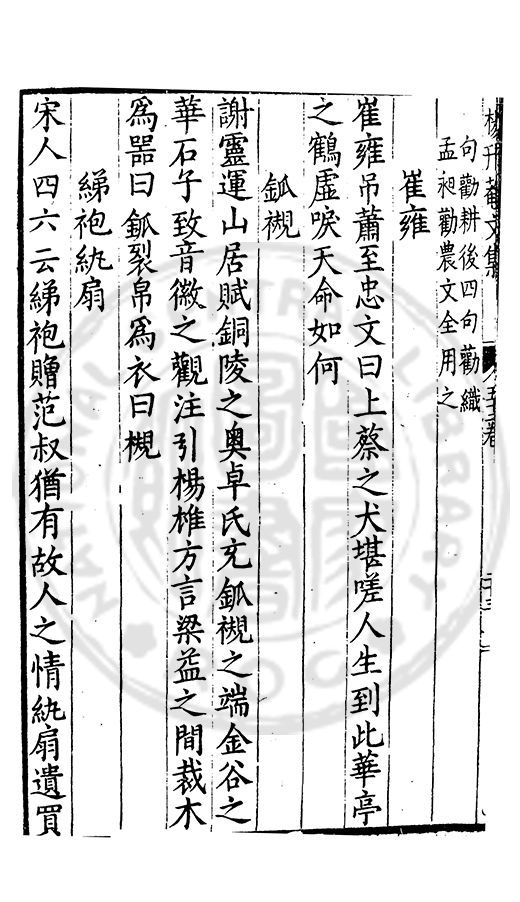 楊升菴文集
句勸耕後四句勸織
孟昶勸農文全用之
崔雍
崔雍吊蕭至忠文曰上蔡之犬堪嗟人生到此華亭
之鶴虛唳天命如何
䤨槻
謝靈運山居賦銅陵之奧卓氏充䤨槻之端金谷之
華石子致音徽之觀注引楊雄方言梁益之間裁木
爲噐曰䤨裂帛爲衣曰槻
綈袍紈扇
宋人四六云綈袍贈范叔猶有故人之情紈扇遺買